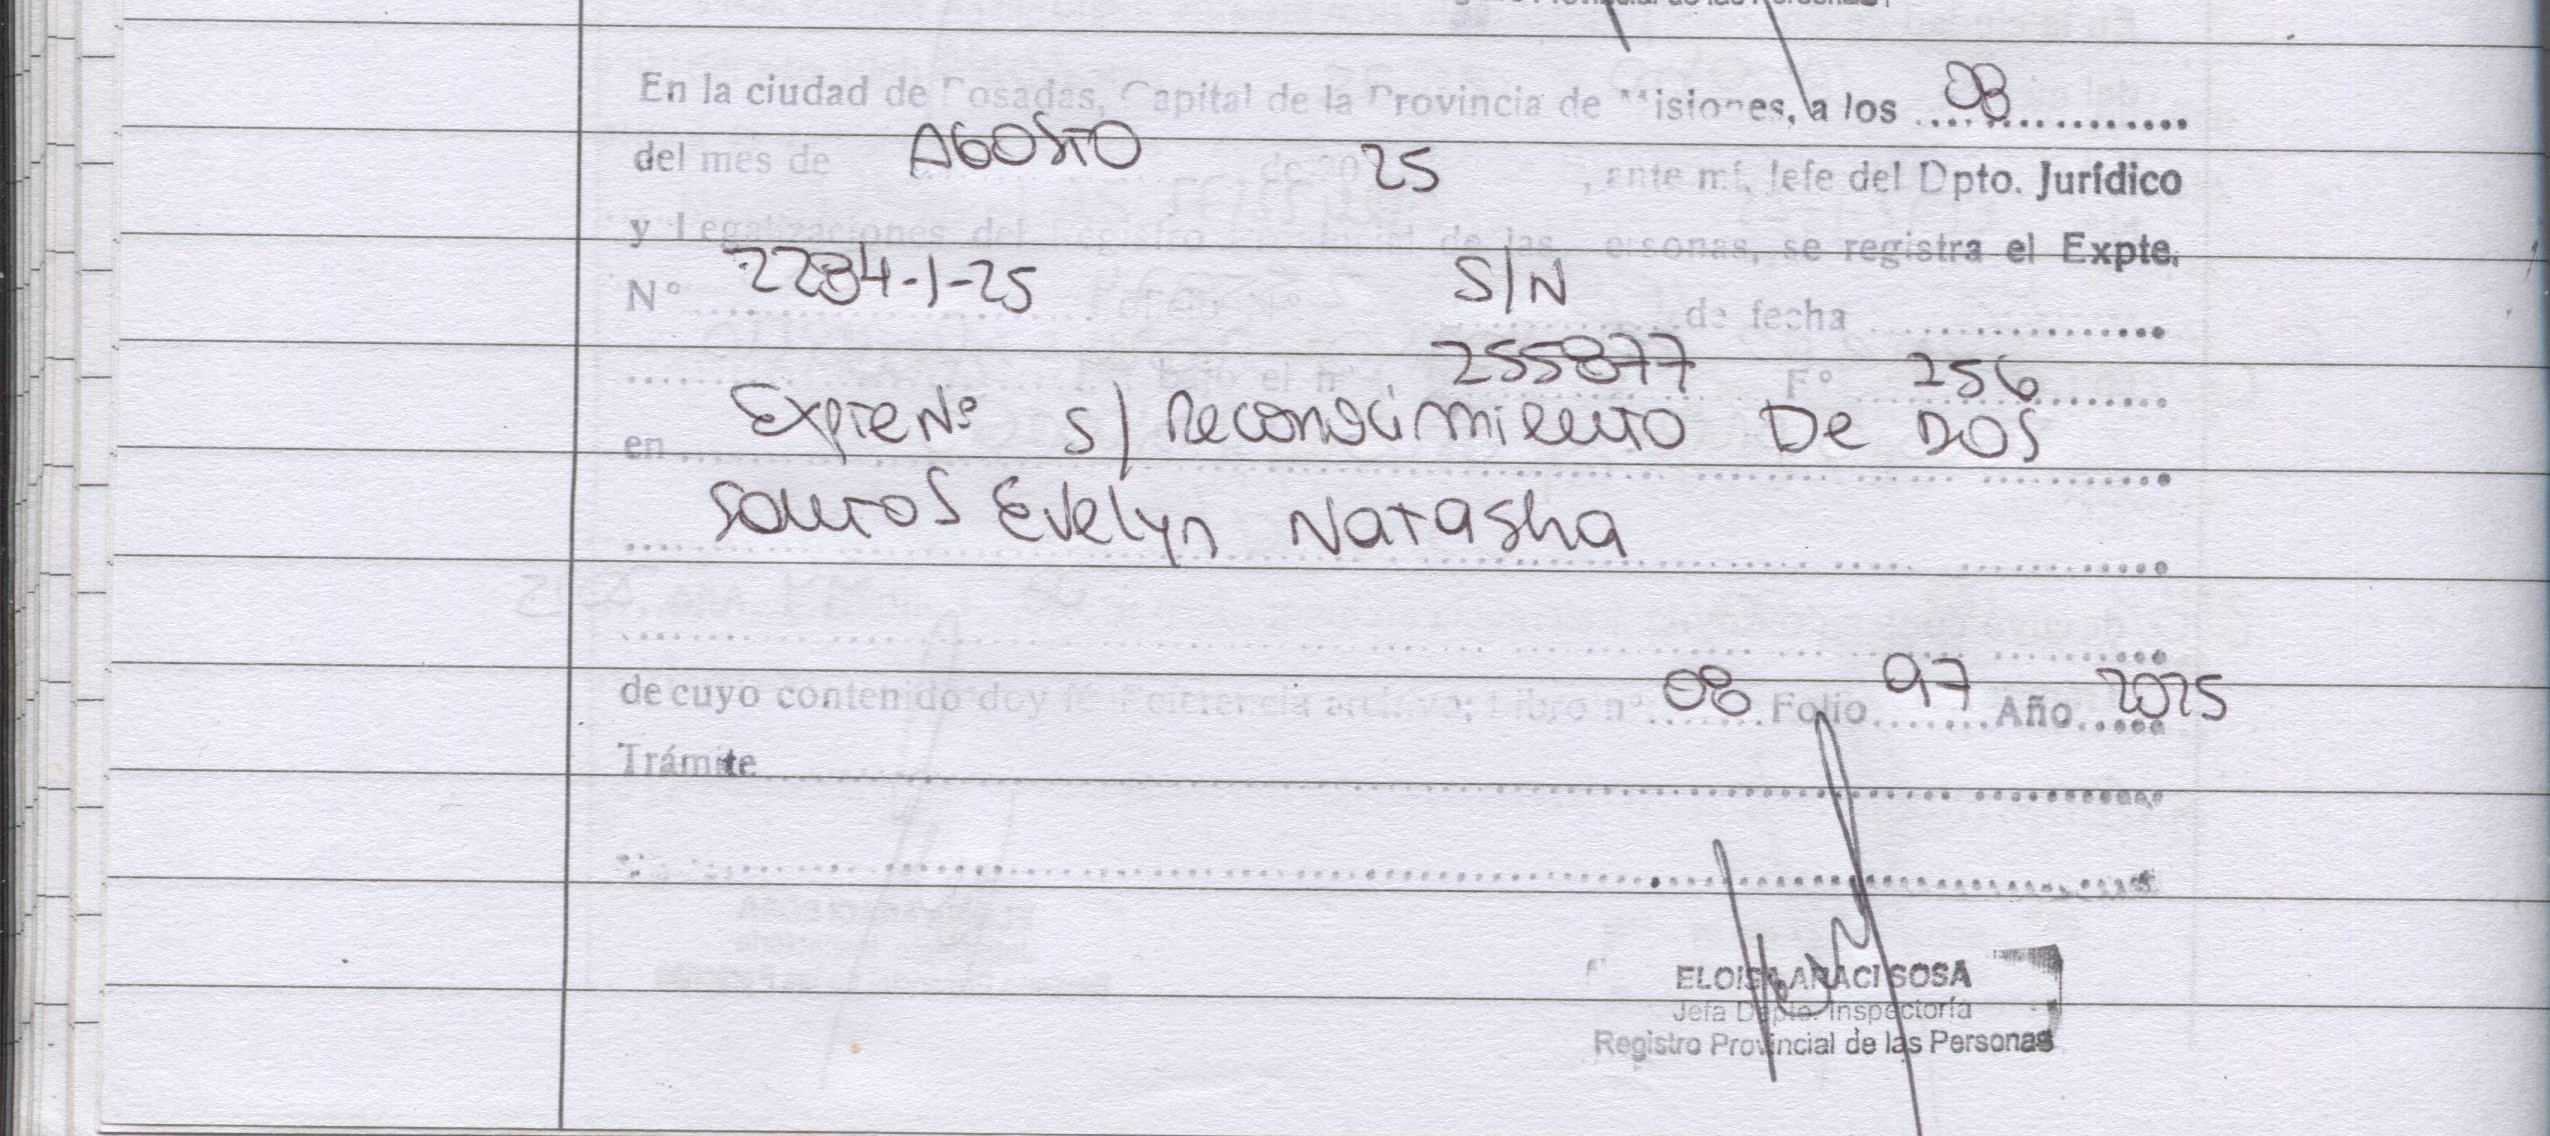 Provincial de las Personas
En la ciudad de Posadas, Capital de la Provincia de Misiones, a los 08
del mes de AGOSTO de 2025, ante mí, Jefe del Dpto. Jurídico
y Legalizaciones del Registro Provincial de las Personas, se registra el Expte.
N° 2284-1-25 S/N de fecha
bajo el n° 255877 F° 256
en Expte N° s/ Reconocimiento De DOS
Santos Evelyn Natasha
de cuyo contenido doy fe Referencia archivo: Libro n° 08 Folio 97 Año 2025
Trámite
ELOISA ARACI SOSA
Jefa Dpto. Inspectoría
Registro Provincial de las Personas